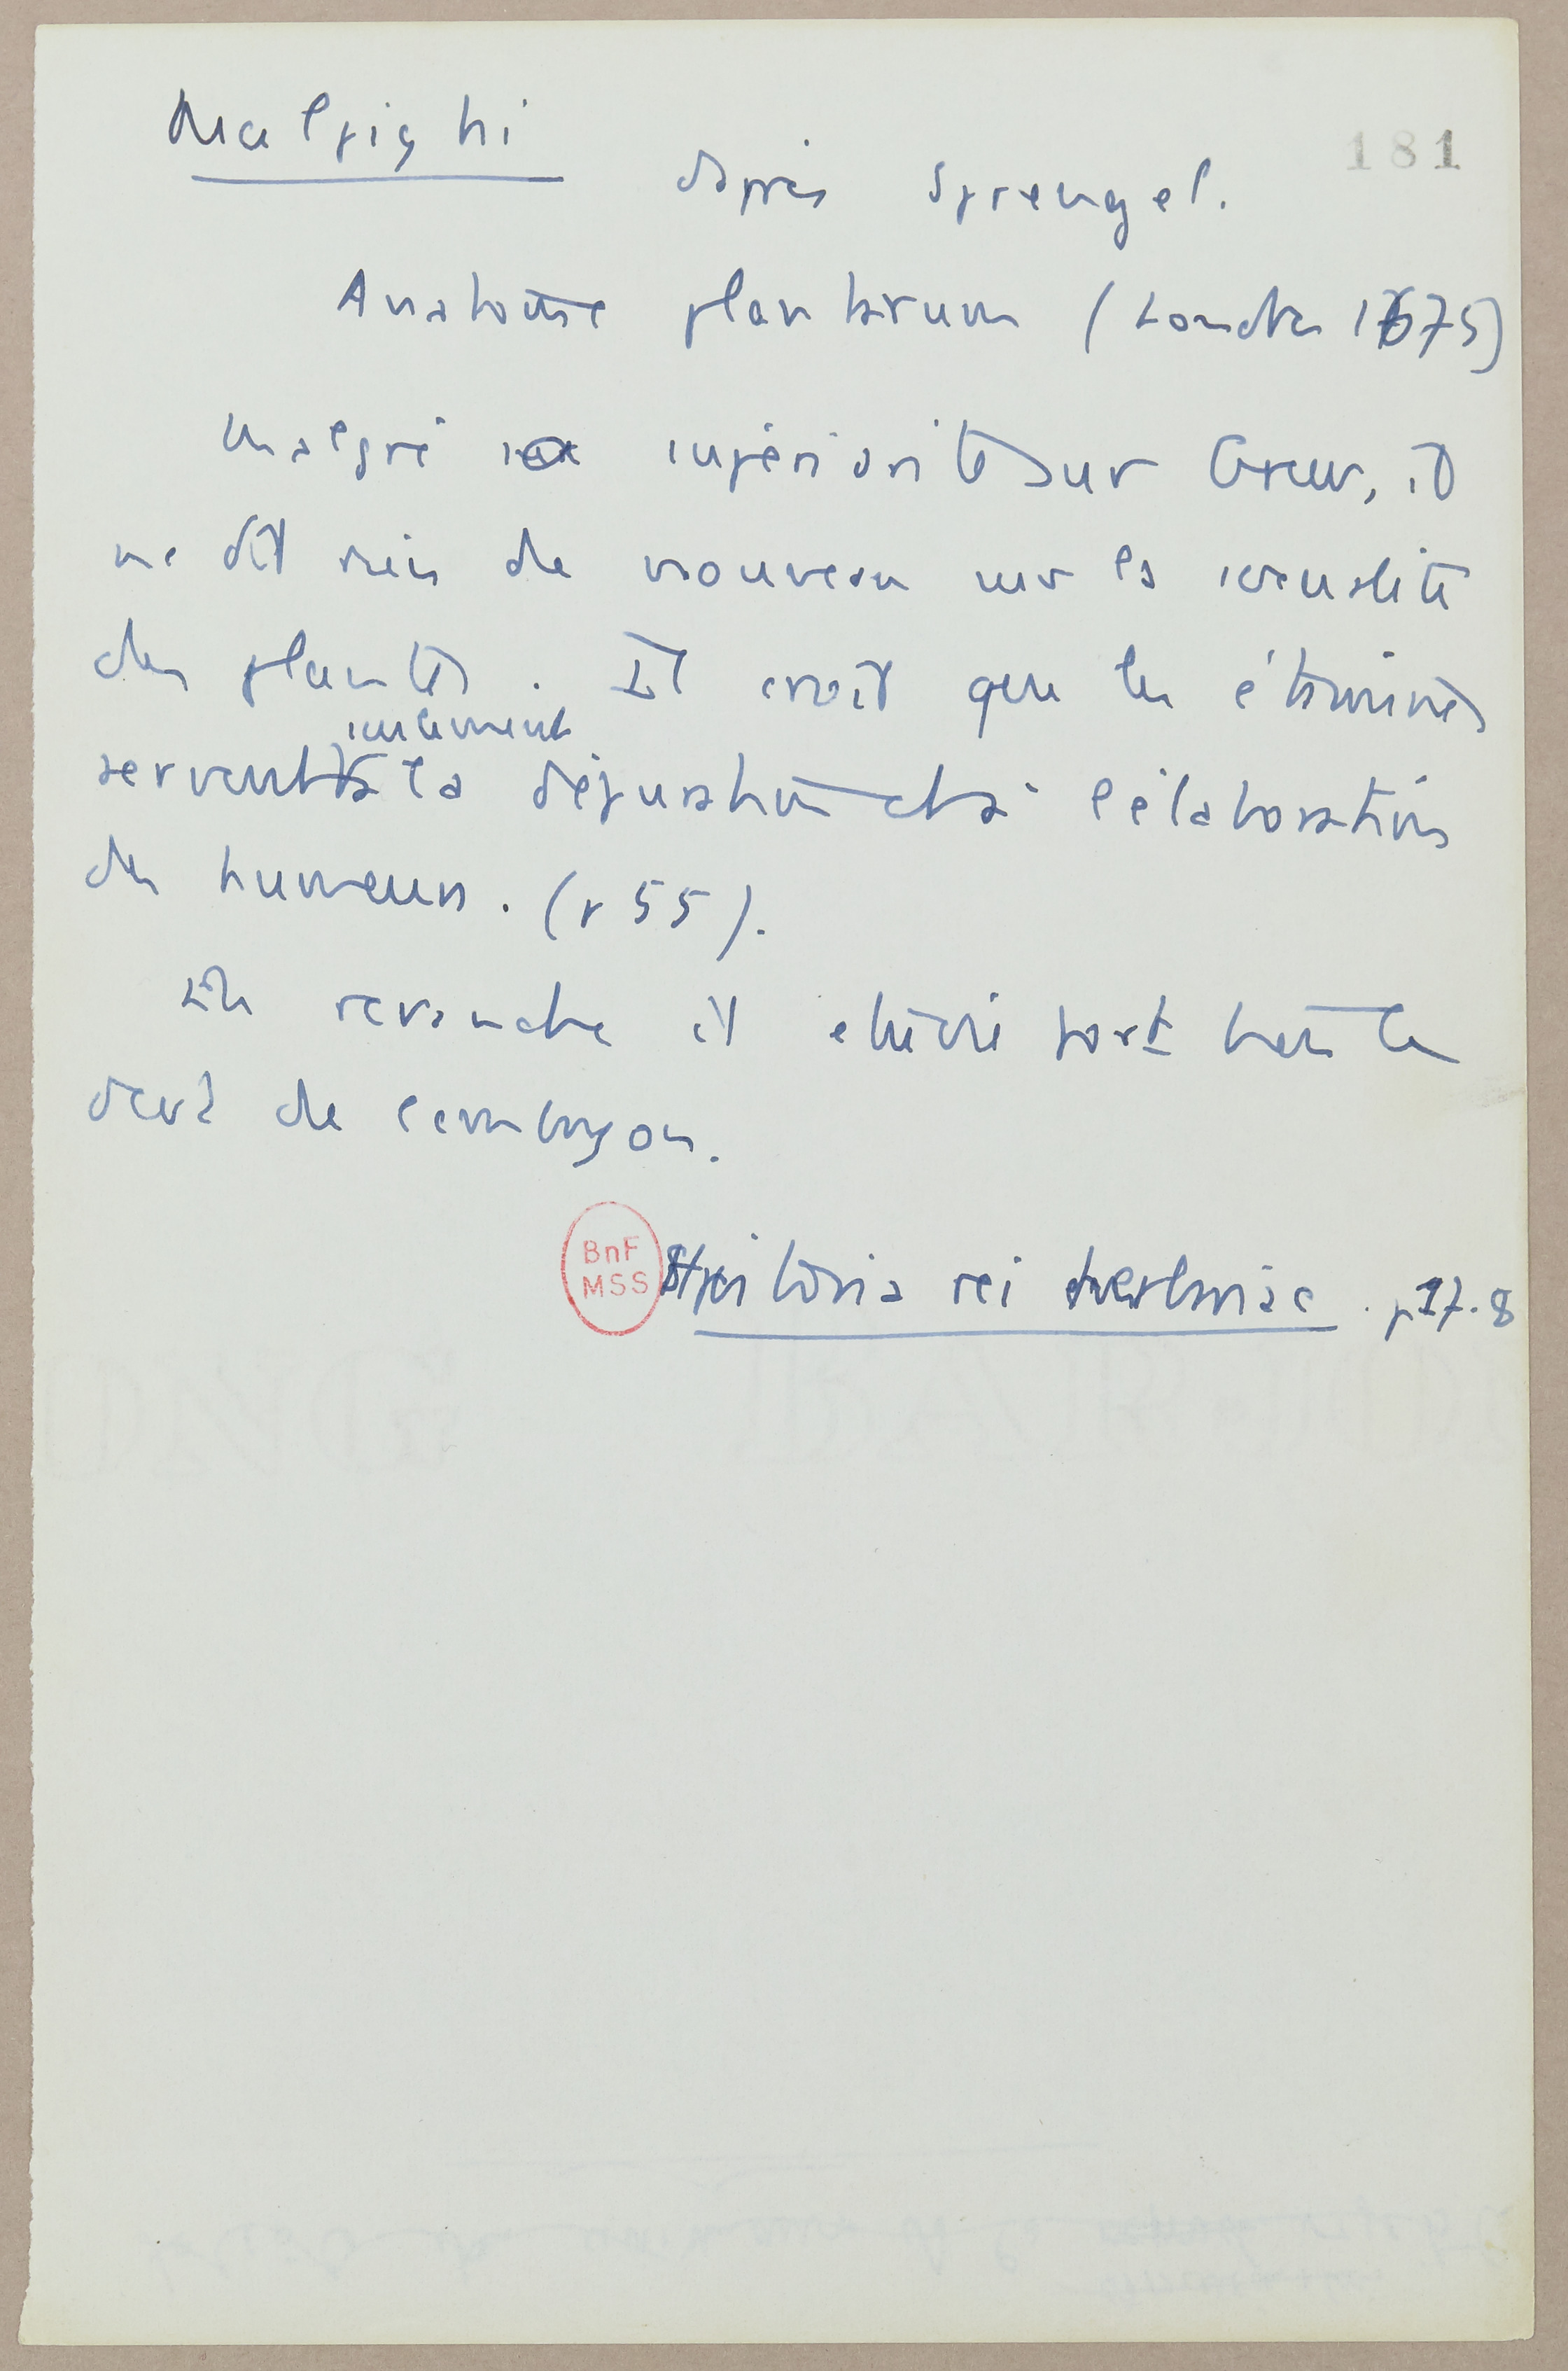 Malpighi
181
d'après Sprengel.
Anatome plantarum (Londres 1675)
Malgré sa supériorité sur Grew, il
ne dit rien de nouveau sur la sexualité
des plantes. Il croit que les étamines
seulement
servent à la dépuration et à l'élaboration
des humeurs. (p 55).
En revanche il étudie fort bien le
devt de l'embryon.
BnF
MSS
Historia rei herbariae. p 17-8